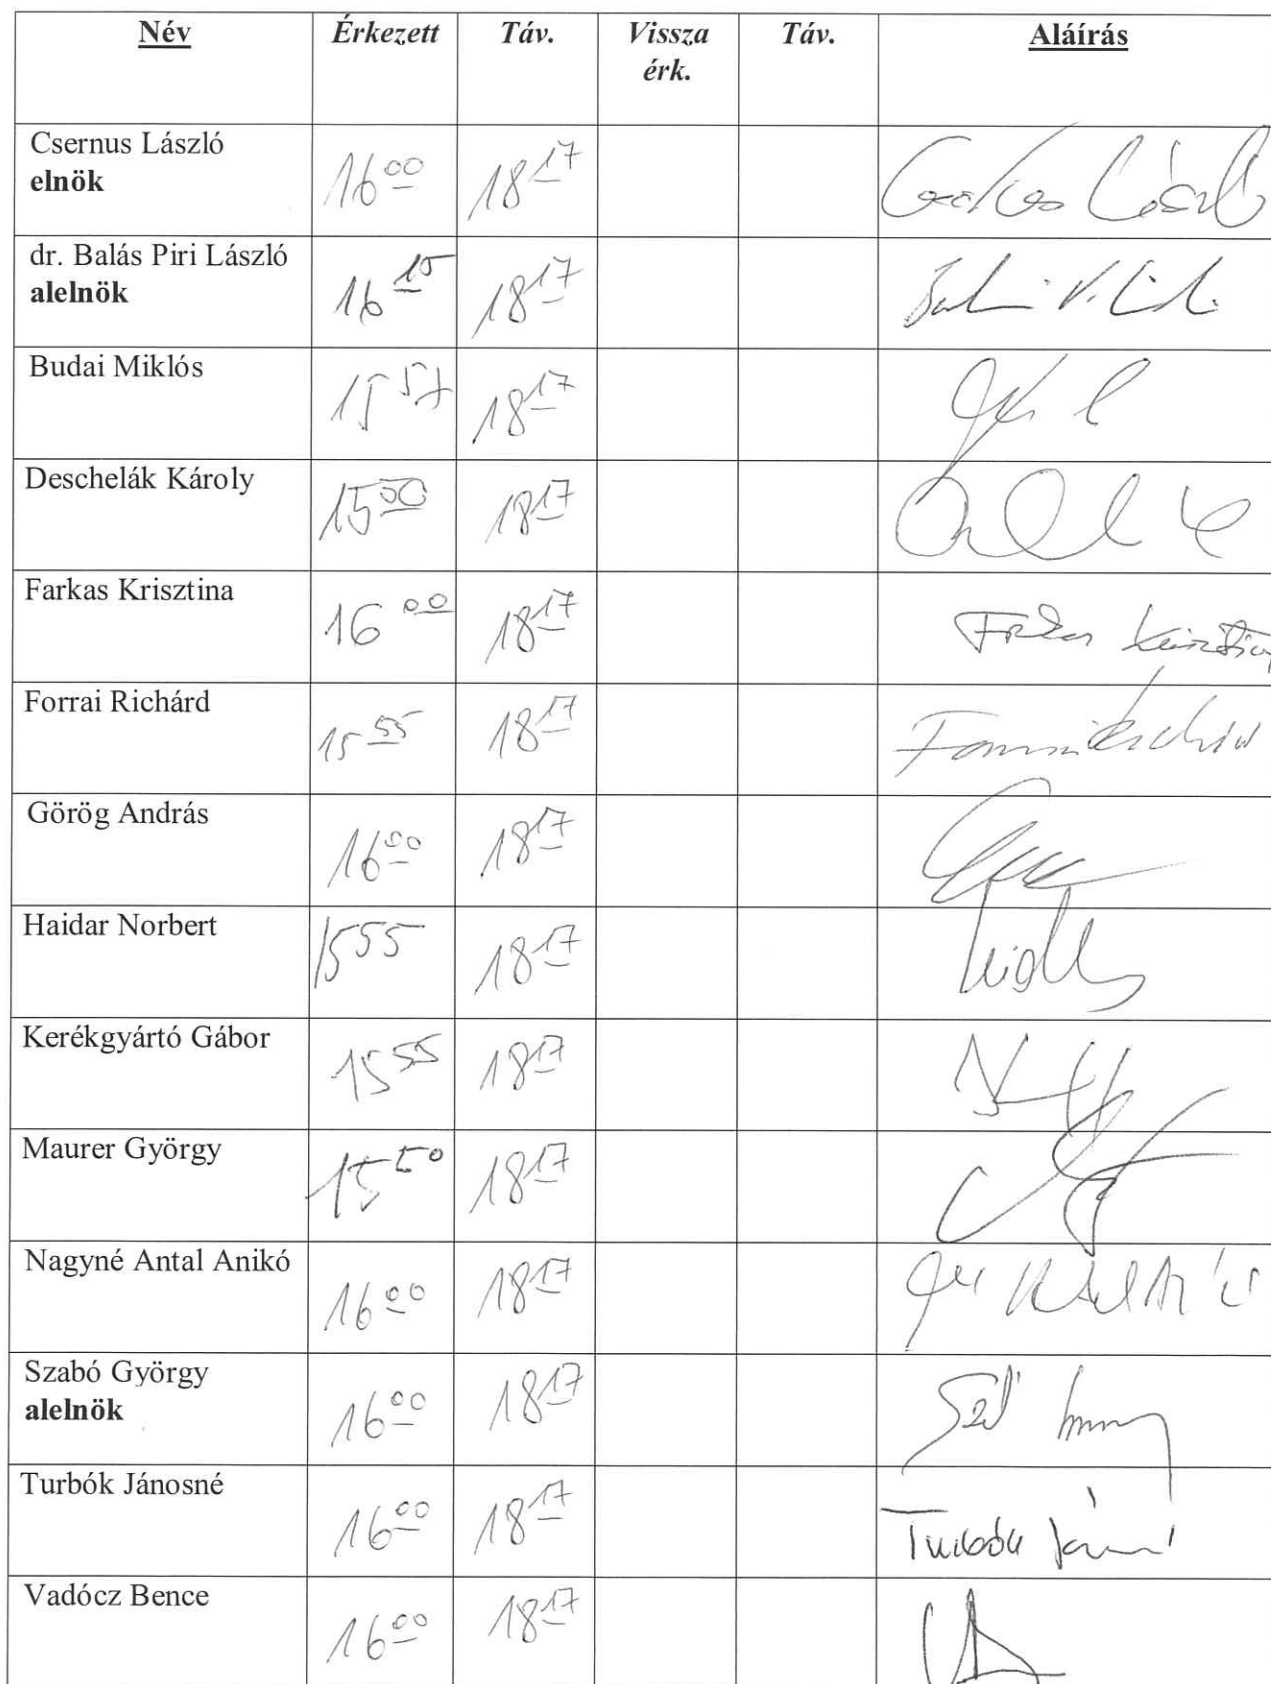 Név Érkezett Táv. Vissza Táv. Aláírás
érk.
Csernus László
elnök 16 00 18 17
dr. Balás Piri László
alelnök 16 15 18 17
Budai Miklós
15 57 18 17
Deschelák Károly
15 50 18 17
Farkas Krisztina
16 00 18 17 Farkas Krisztina
Forrai Richárd
15 55 18 17
Görög András
16 00 18 17
Haidar Norbert
15 55 18 17
Kerékgyártó Gábor
15 55 18 17
Maurer György
15 50 18 17
Nagyné Antal Anikó
16 00 18 17
Szabó György
alelnök 16 00 18 17
Turbók Jánosné
16 00 18 17 Turbók
Vadócz Bence
16 00 18 17